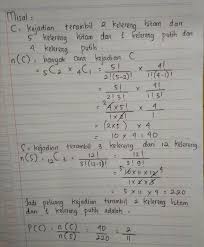 Misal :
C = kejadian terambil 2 kelereng hitam dan
5 kelereng hitam dan 1 kelereng putih dari
4 kelereng putih
n(C) = banyak cara kejadian C
= 5C2 × 4C1 = 5! / 2!(5-2)! × 4! / 1!(4-1)!
= 5! / 2! 3! × 4! / 1! 3!
= 4 × 5! / 1 × 2 × 4 / 1
= (2 × 5) × 4
= 10 × 4 = 40
S = kejadian terambil 3 kelereng dari 12 kelereng
n(S) = 12C3 = 12! / 3! (12-3)! = 12! / 3! 9!
= 10 × 11 × 12 / 1 × 2 × 3
= 5 × 11 × 4 = 220
Jadi peluang kejadian terambil 2 kelereng hitam
dan 1 kelereng putih adalah :
P(C) = n(C) / n(S) = 40 / 220 = 2 / 11